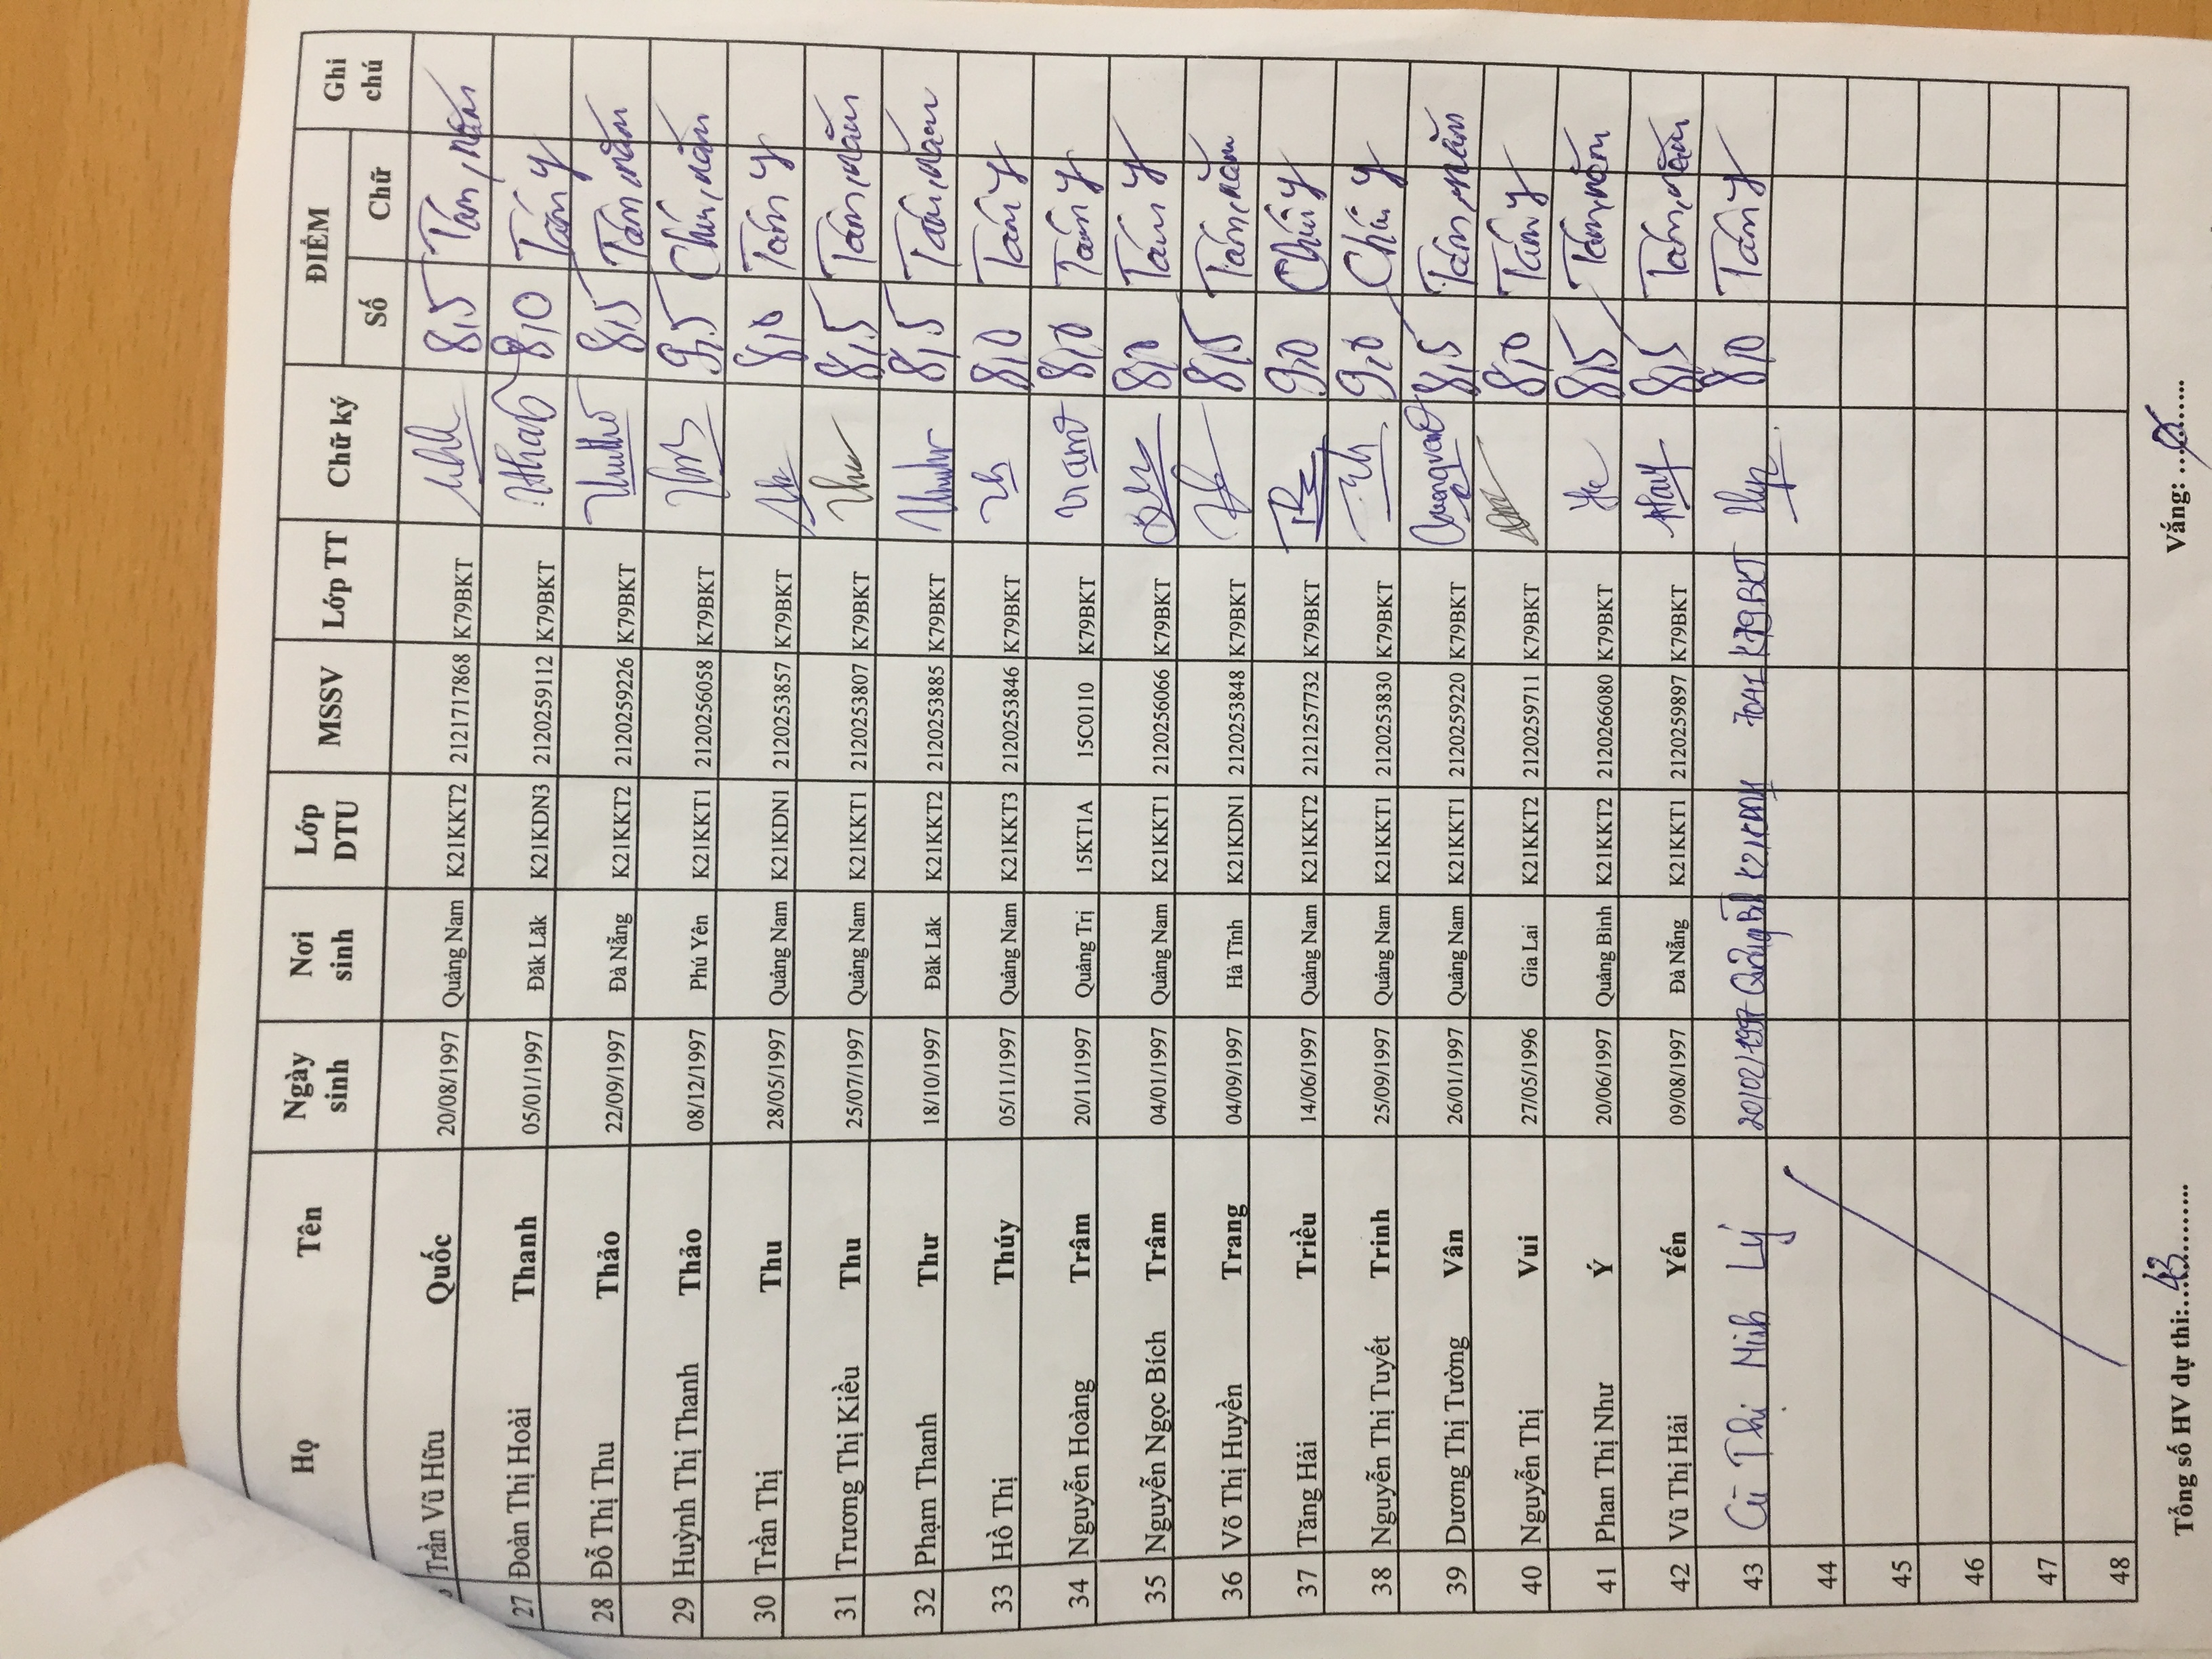 Họ Tên Ngày sinh Nơi sinh Lớp DTU MSSV Lớp TT Chữ ký ĐIỂM Số Chữ Ghi chú
Trần Vũ Hữu Quốc 20/08/1997 Quảng Nam K21KKT2 2121717868 K79BKT 8,5 Tám, năm
27 Đoàn Thị Hoài Thanh 05/01/1997 Đăk Lăk K21KDN3 2120259112 K79BKT 8,0 Tám y
28 Đỗ Thị Thu Thảo 22/09/1997 Đà Nẵng K21KKT2 2120259226 K79BKT 8,5 Tám, năm
29 Huỳnh Thị Thanh Thảo 08/12/1997 Phú Yên K21KKT1 2120256058 K79BKT 9,5 Chín, năm
30 Trần Thị Thu 28/05/1997 Quảng Nam K21KDN1 2120253857 K79BKT 8,0 Tám y
31 Trương Thị Kiều Thu 25/07/1997 Quảng Nam K21KKT1 2120253807 K79BKT 8,5 Tám, năm
32 Phạm Thanh Thư 18/10/1997 Đăk Lăk K21KKT2 2120253885 K79BKT 8,5 Tám, năm
33 Hồ Thị Thúy 05/11/1997 Quảng Nam K21KKT3 2120253846 K79BKT 8,0 Tám y
34 Nguyễn Hoàng Trâm 20/11/1997 Quảng Trị 15KT1A 15C0110 K79BKT 8,0 Tám y
35 Nguyễn Ngọc Bích Trâm 04/01/1997 Quảng Nam K21KKT1 2120256066 K79BKT 8,0 Tám y
36 Võ Thị Huyền Trang 04/09/1997 Hà Tĩnh K21KDN1 2120253848 K79BKT 8,5 Tám, năm
37 Tăng Hải Triều 14/06/1997 Quảng Nam K21KKT2 2121257732 K79BKT 9,0 Chín y
38 Nguyễn Thị Tuyết Trinh 25/09/1997 Quảng Nam K21KKT1 2120253830 K79BKT 9,0 Chín y
39 Dương Thị Tường Vân 26/01/1997 Quảng Nam K21KKT1 2120259220 K79BKT 8,5 Tám, năm
40 Nguyễn Thị Vui 27/05/1996 Gia Lai K21KKT2 2120259711 K79BKT 8,0 Tám y
41 Phan Thị Như Ý 20/06/1997 Quảng Bình K21KKT2 2120266080 K79BKT 8,5 Tám, năm
42 Vũ Thị Hải Yến 09/08/1997 Đà Nẵng K21KKT1 2120259897 K79BKT 8,5 Tám, năm
43 Cù Thị Minh Lý 20/02/1997 Quảng 7041 K79BKT 8,0 Tám y
44
45
46
47
48
Tổng số HV dự thi: 43 Vắng: